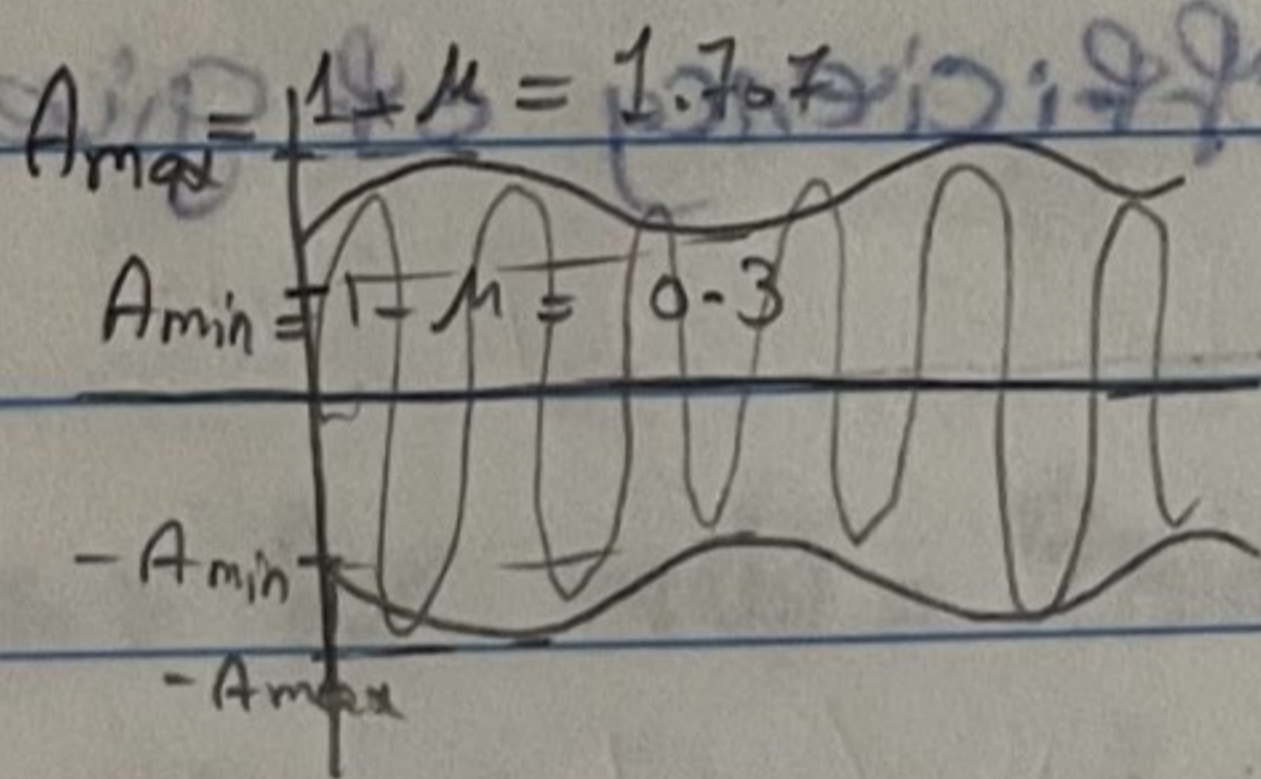 Amax = 1+μ = 1.707
Amin = 1-μ = 0.3
-Amin
-Amax